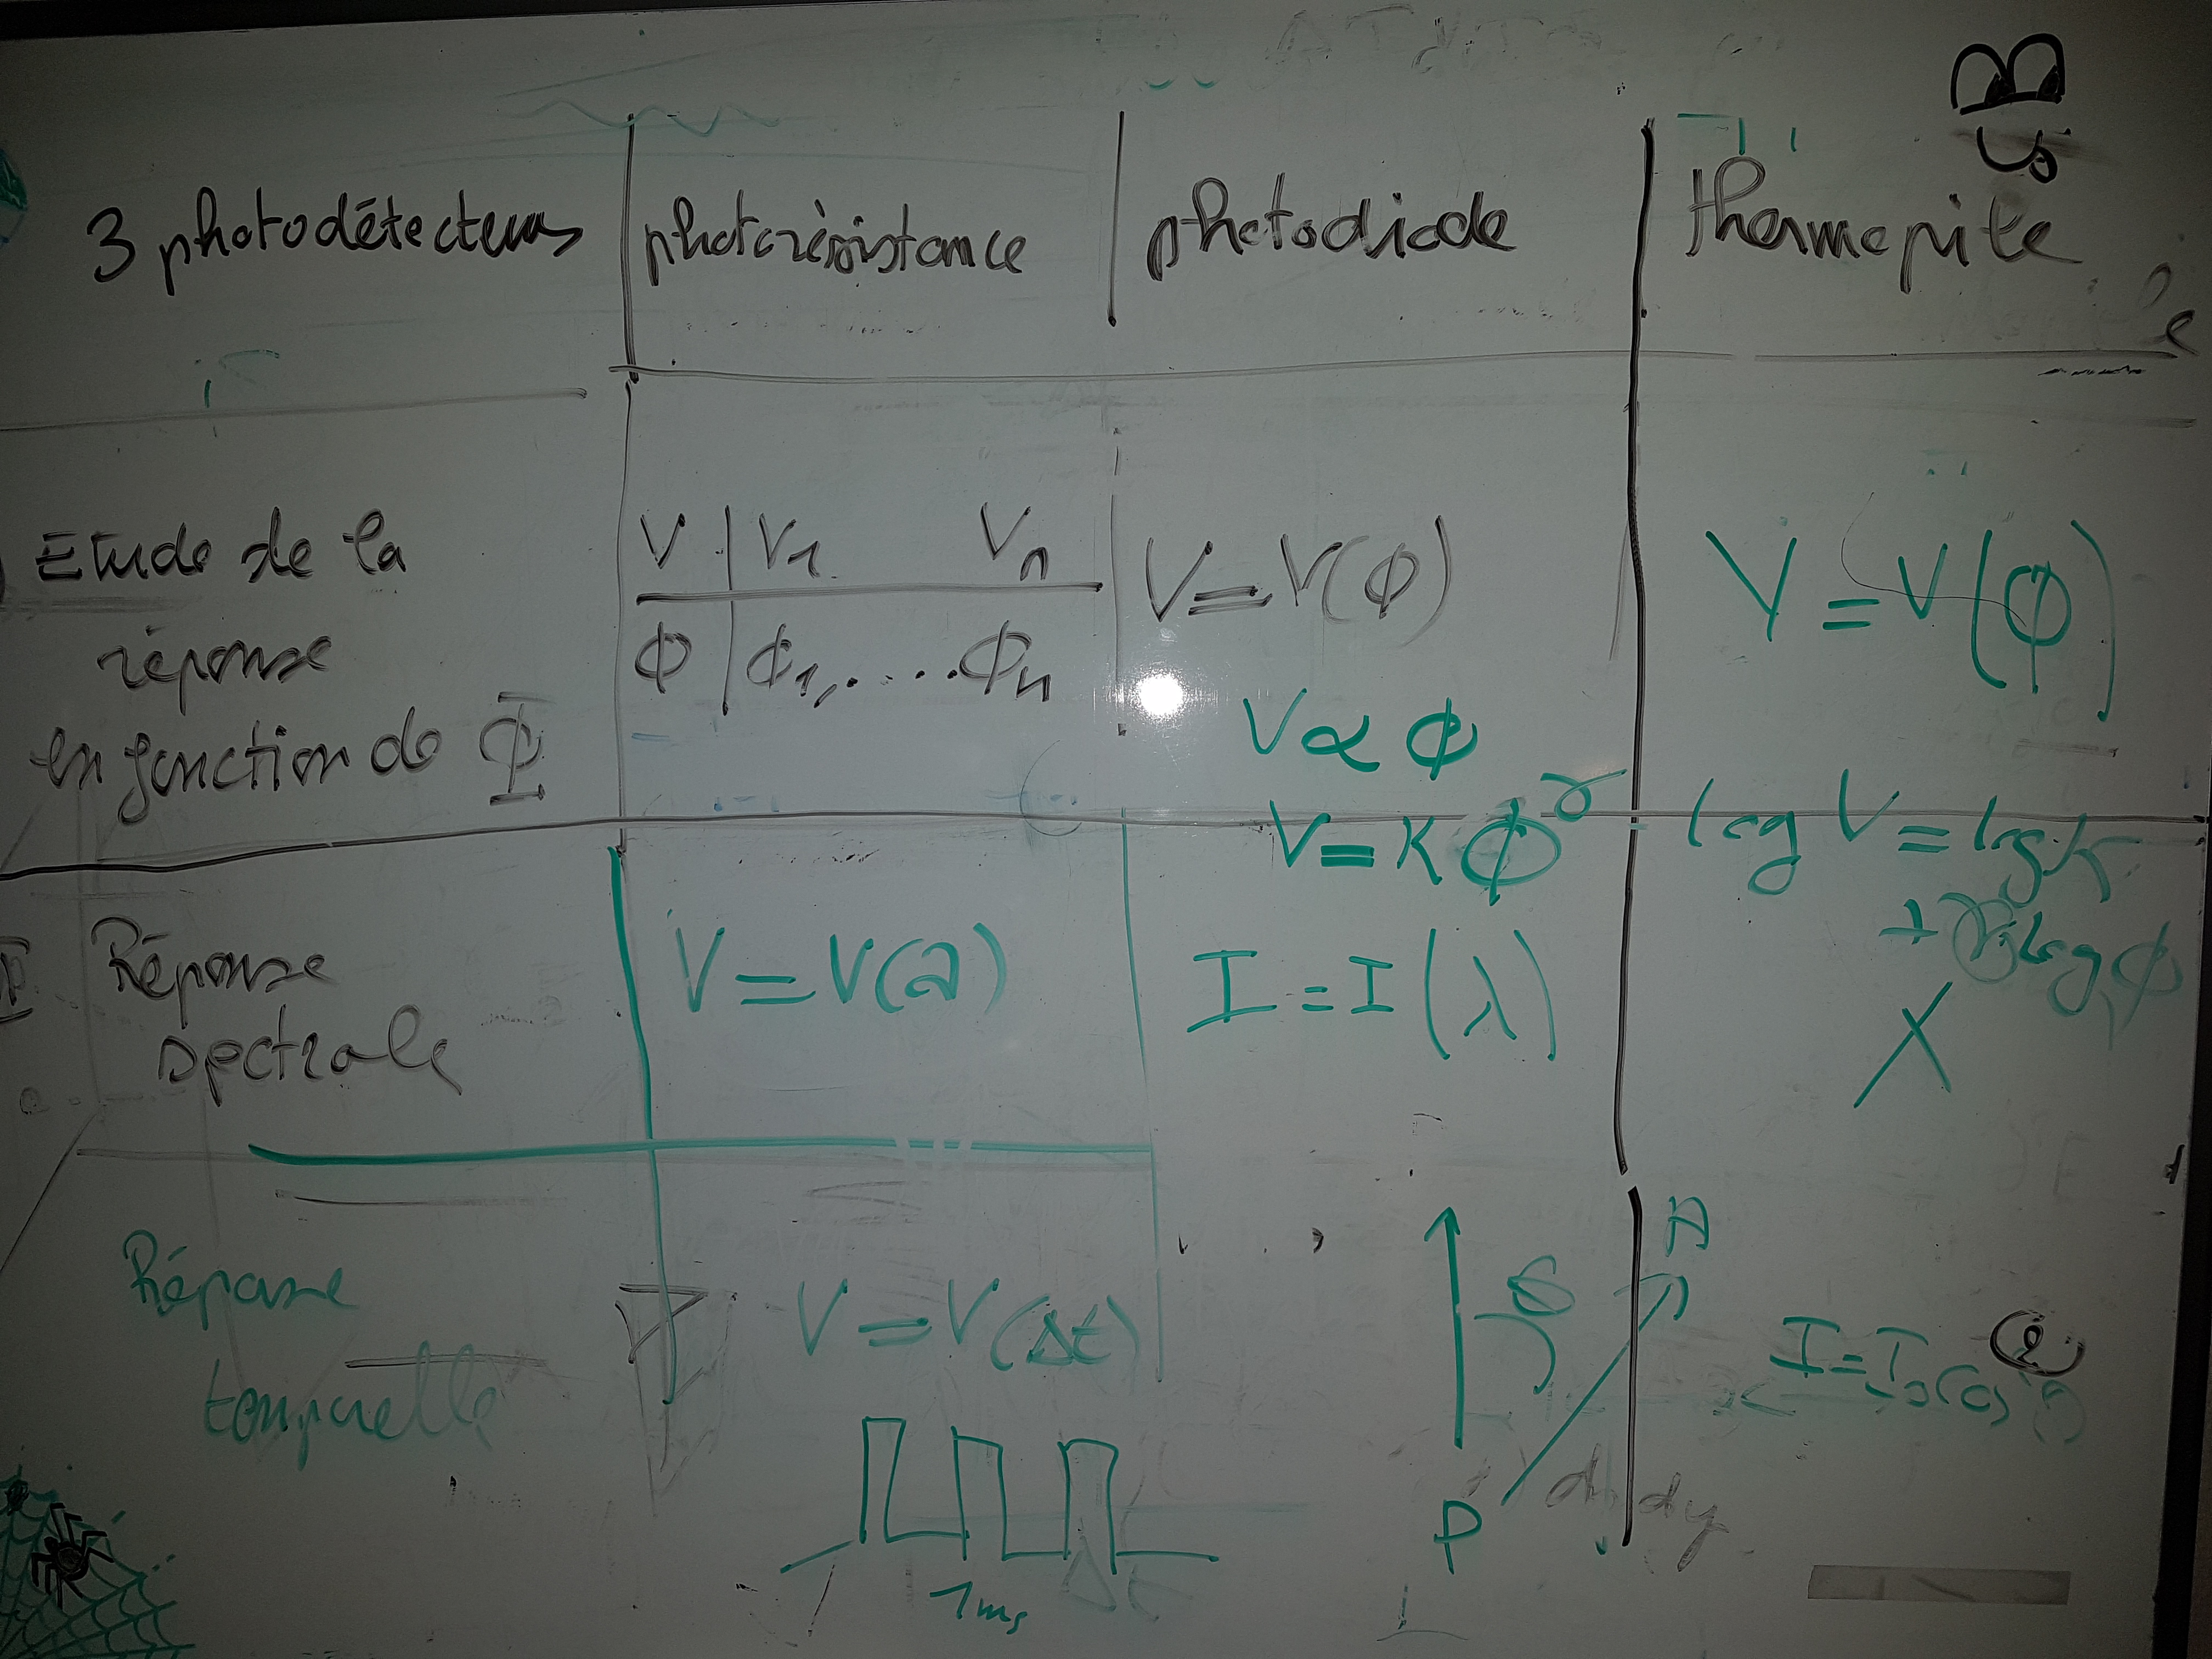 3 photodétecteurs
photorésistance
photodiode
thermopile
Etude de la
réponse
en fonction de Φ
V | V1 Vn
Φ | Φ1, .... Φn
V = V(Φ)
V ∝ Φ
V = K Φ^γ
V = V(Φ)
log V = log K
+ γ log Φ
Réponse
spectrale
V = V(λ)
I = I(λ)
X
Réponse
temporelle
V = V(Δt)
1ms
P
A
θ